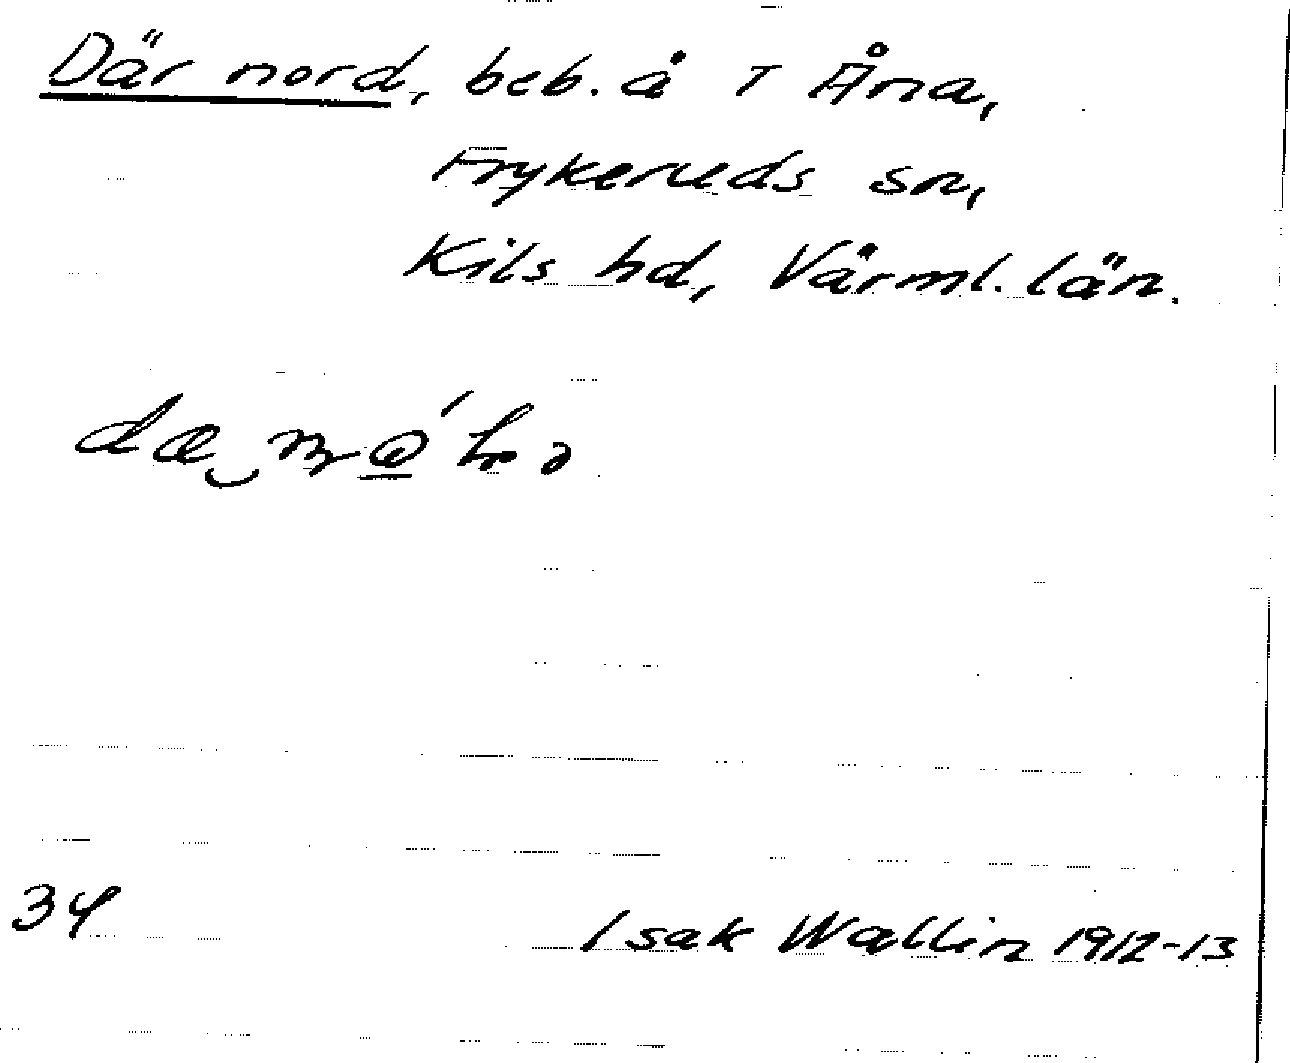 Där nord, beb. å T Åna,
Frykeruds sn,
Kils hd, Värml. län.
34
Isak Wallin 1912-13